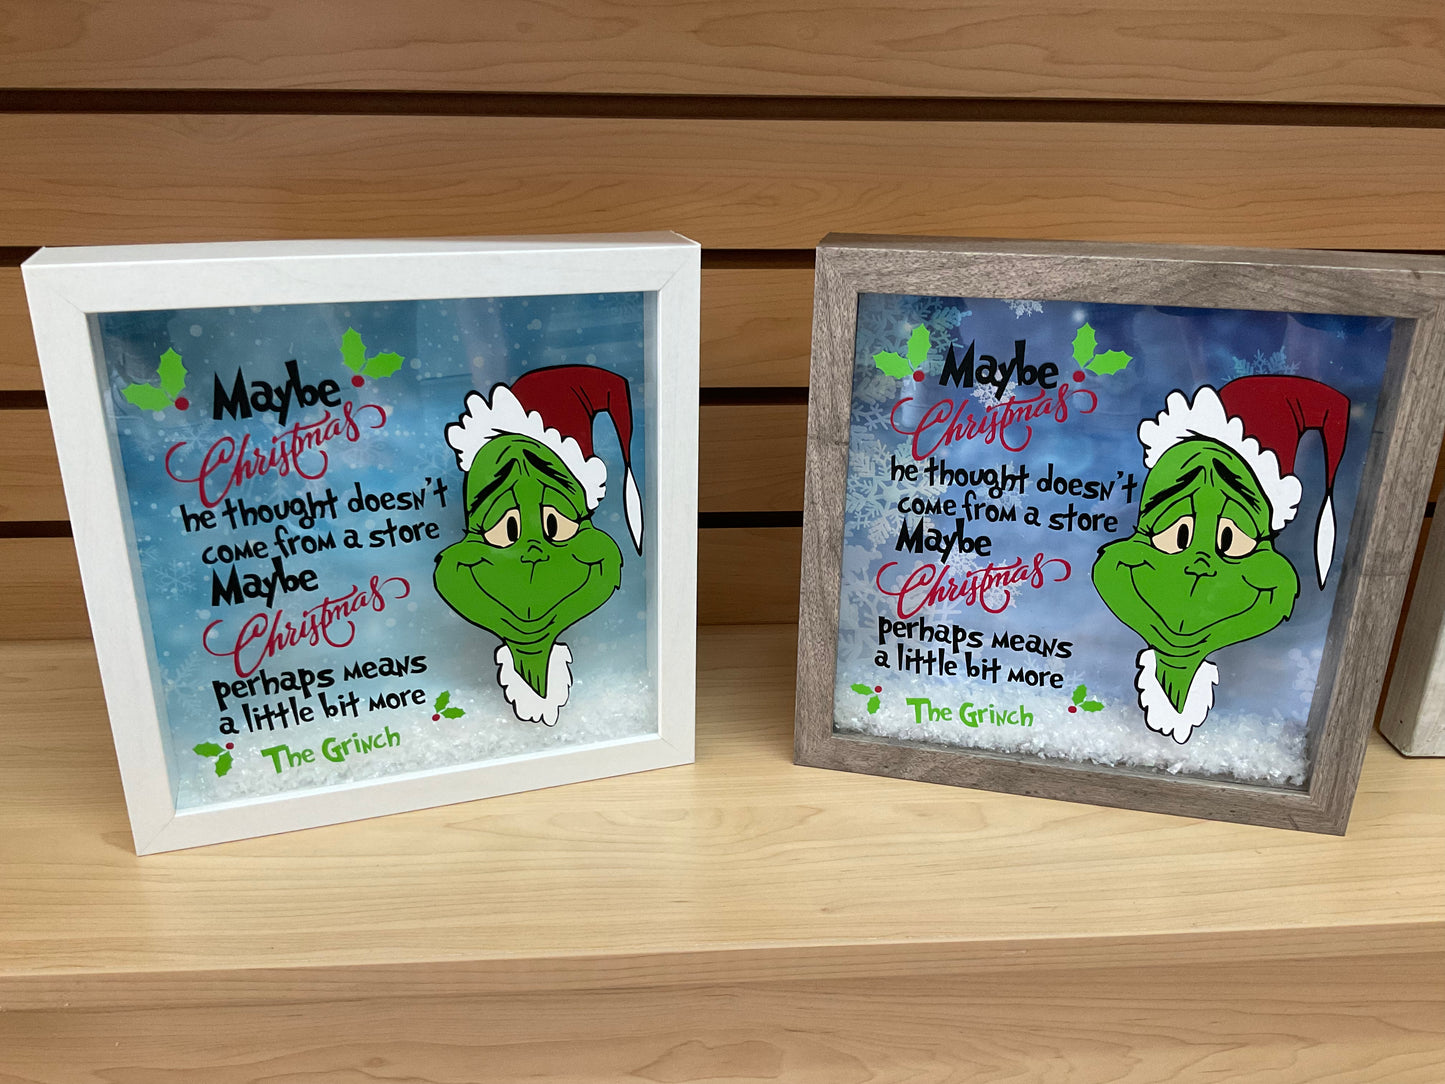 Maybe
Christmas
he thought doesn't
come from a store
Maybe
Christmas
perhaps means
a little bit more
The Grinch
Maybe
Christmas
he thought doesn't
come from a store
Maybe
Christmas
perhaps means
a little bit more
The Grinch